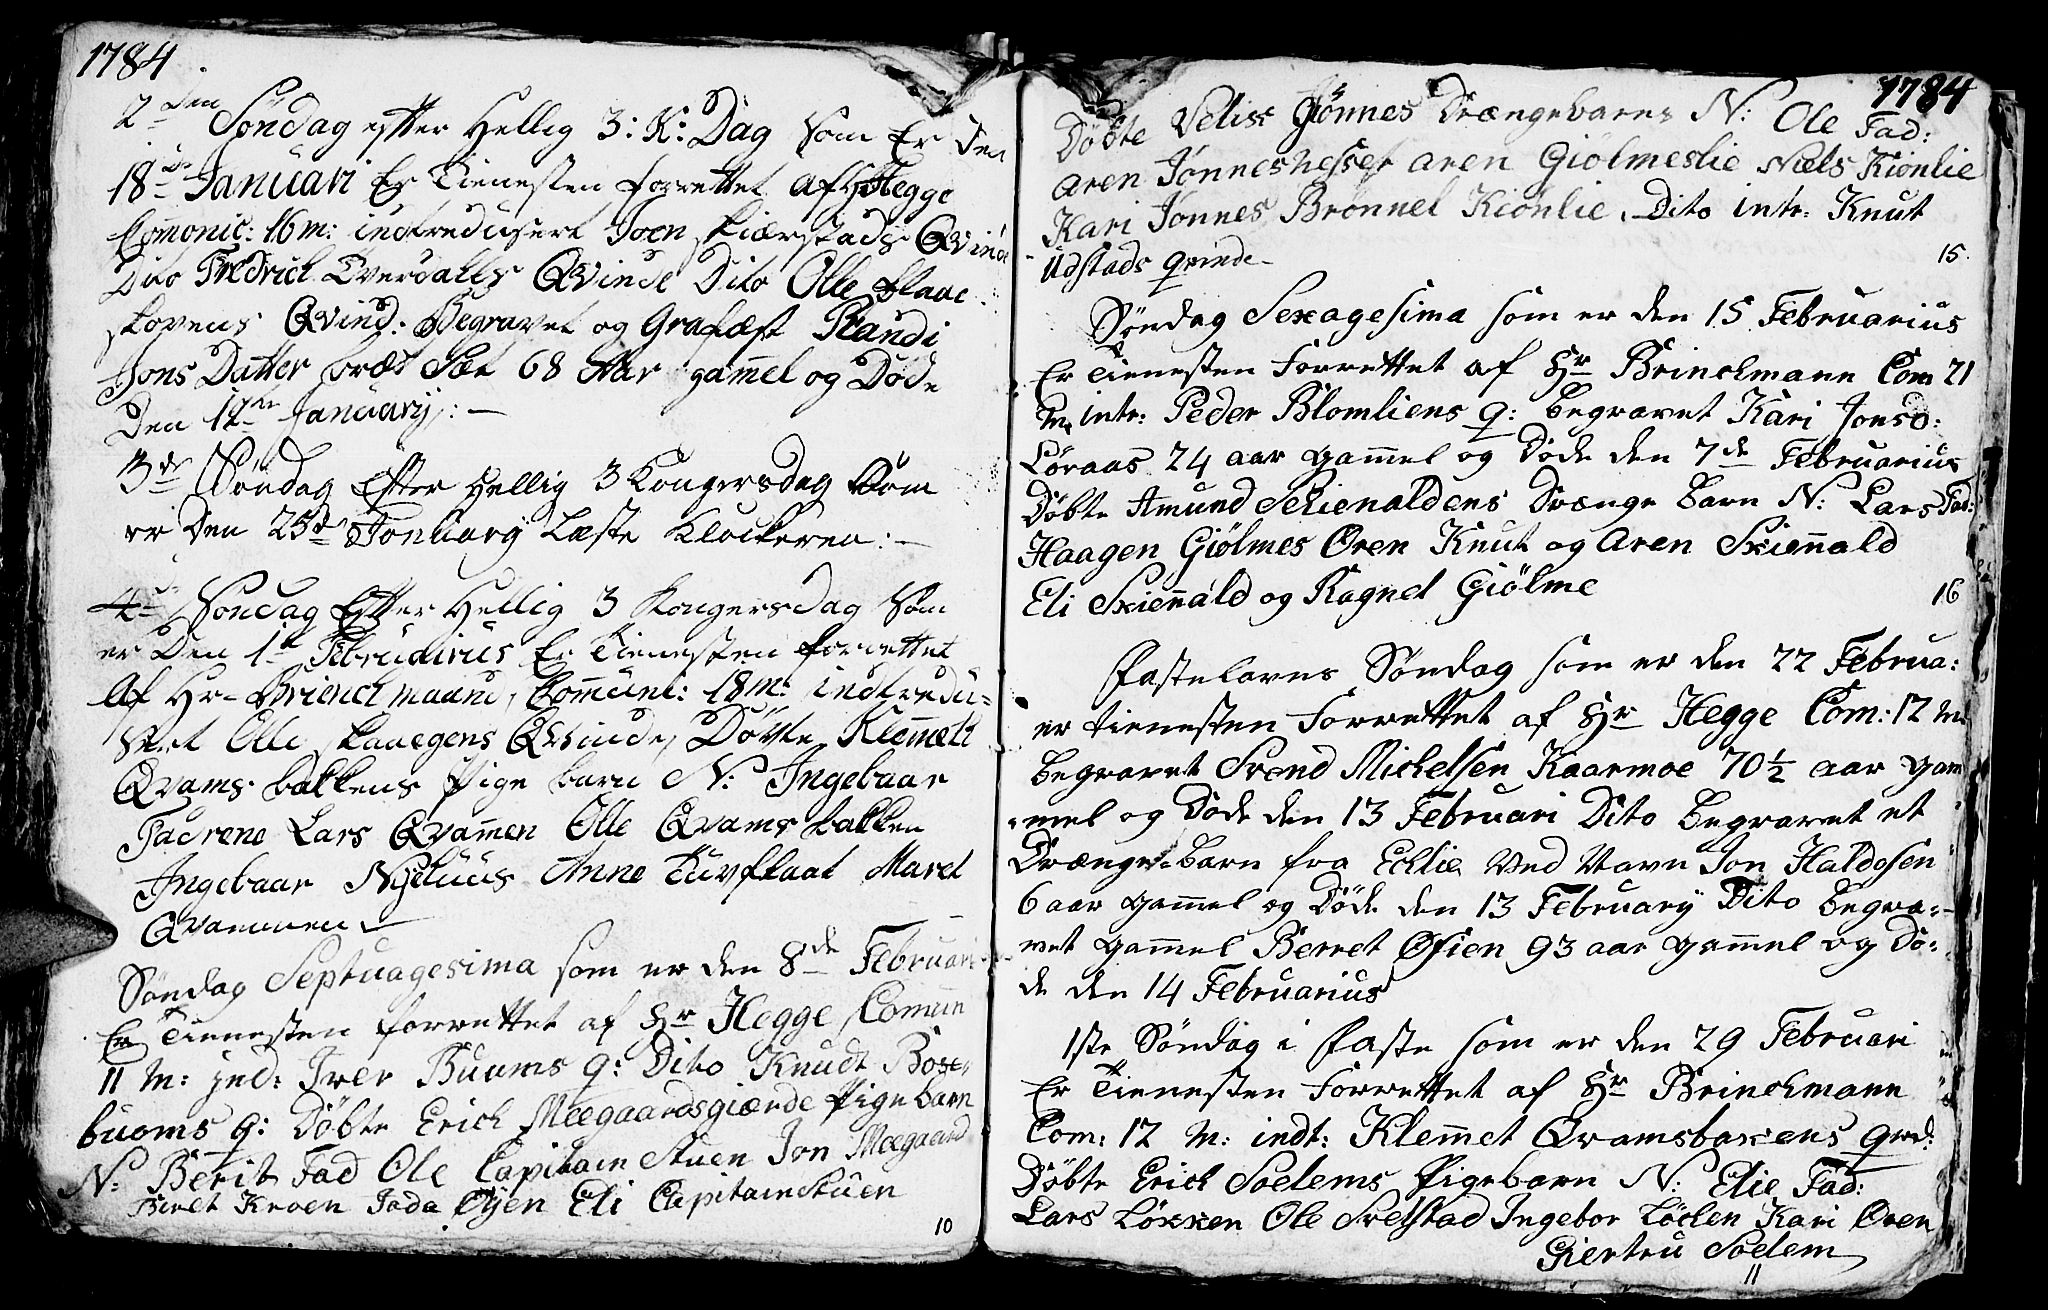 1784
2den Søndag efter Hellig 3: K: Dag som Er den
18de Januari Er Tienesten forrettet af Hr Hegge
Comonic: 16 m: indtreduseret Joen skiærstads Qvinde
Dito Fredrich Qvinde Dito Olle
skovens Qvind: Begravet og Grafæst Randi
Jons Datter 68 Aar gam̄el og Døde
Den 12te January: —
3de Søndag Efter Hellig 3 Kongersdag som
er Den 25de January Læste Klockeren: —
4de Søndag Efter Hellig 3 Kongersdag som
er Den 1te Februarius Er Tienesten forrettet
af Hr- Brinchmaand, Com̄unt: 18 m: indtredu-
sert Olle skaaegens Qvinde, Døbte Klem̄ett
Qvams bakkens Pige barn N: Ingebaar
Fadrene Lars Qvam̄en Olle Qvams bakken
Ingebaar Nyhuus Anne Maret
Qvammen —
Søndag Septuagesima som er den 8de Februari
Er Tienesten forrettet af Hr Hegge, Comun̄
11 M: ind: Iver Buums q: Dito Knudt
buoms q: Døbte Erich Meegaardsgiærde Pigebarn
N: Berit Fad Ole Capitain Stuen Jon Meegaard
Beret Kroen Jada Øyen Eli Capitain Stuen
10
1784
Døbte Velix Gjønnes Drængebarn N: Ole Fad:
Aren Jønneshesset Aren Giølmeslie Niels Kionlie
Kari Jønnes Brønnel Kionlie, Dito intr: Knut
Udstads qvinde-
15.
Søndag Sexagesima som er den 15 Februarius
Er Tienesten Forrettet af Hr Brinchmann Com 21
M, intr: Peder Blomliens q: begravet Kari Jonsd:
Løraas 24 aar gam̄el og Døde den 7de Februarius
Døbte Amund Schienaldens Drænge barn N: Lars Fad:
Haagen Giølmes Øren Knut og Aren Skien̄ald
Eli Skien̄ald og Ragnel Giölme
16
Fastelavns Søndag som er den 22 Februa:
er tienesten Forrettet af Hr Hegge Com: 12 M:
begravet Svend Michelsen Kaarmoe 70½ aar gam
mel og Døde den 13 Februari Dito begravet et
Drænge barn fra Echlie Ved Navn Jon Haldosen
6 aar gam̄el og Døde den 13 February Dito begra:-
vet gam̄el Berret Øsien 93 aar gam̄el og Dö:
de den 14 Februarius
1ste Søndag i Faste som er den 29 Februari
Er Tienesten Forrettet af Hr Brinchmann
Com: 12 M: indt: Klem̄et Qvamsbaxens qvd:
Døbte Erich Soelems Pigebarn N: Elie Fad:
Lars Løkken Ole Svetstad Ingebor Löchen Kari Ören
Giertru Soelem
11